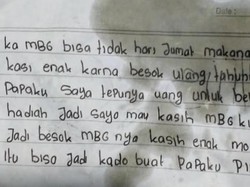 Date:
ka MBG bisa tidak hari Jumat makana
kasi enak karna besok ulang tahun
Papaku saya tepunya uang untuk be
hadiah Jadi Sayo mau kasih MBG ku
Jadi besok MBG nya kasih enak mo
itu biso Jad kado buat PaPaku